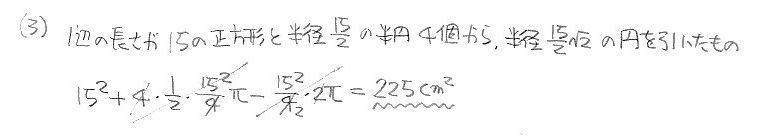 (3) 1辺の長さが15の正方形と半径15/2の半円4個から、半径15/2√2の円を引いたもの
15²+4・1/2・15²/4π-15²/4₂・2π=225cm²